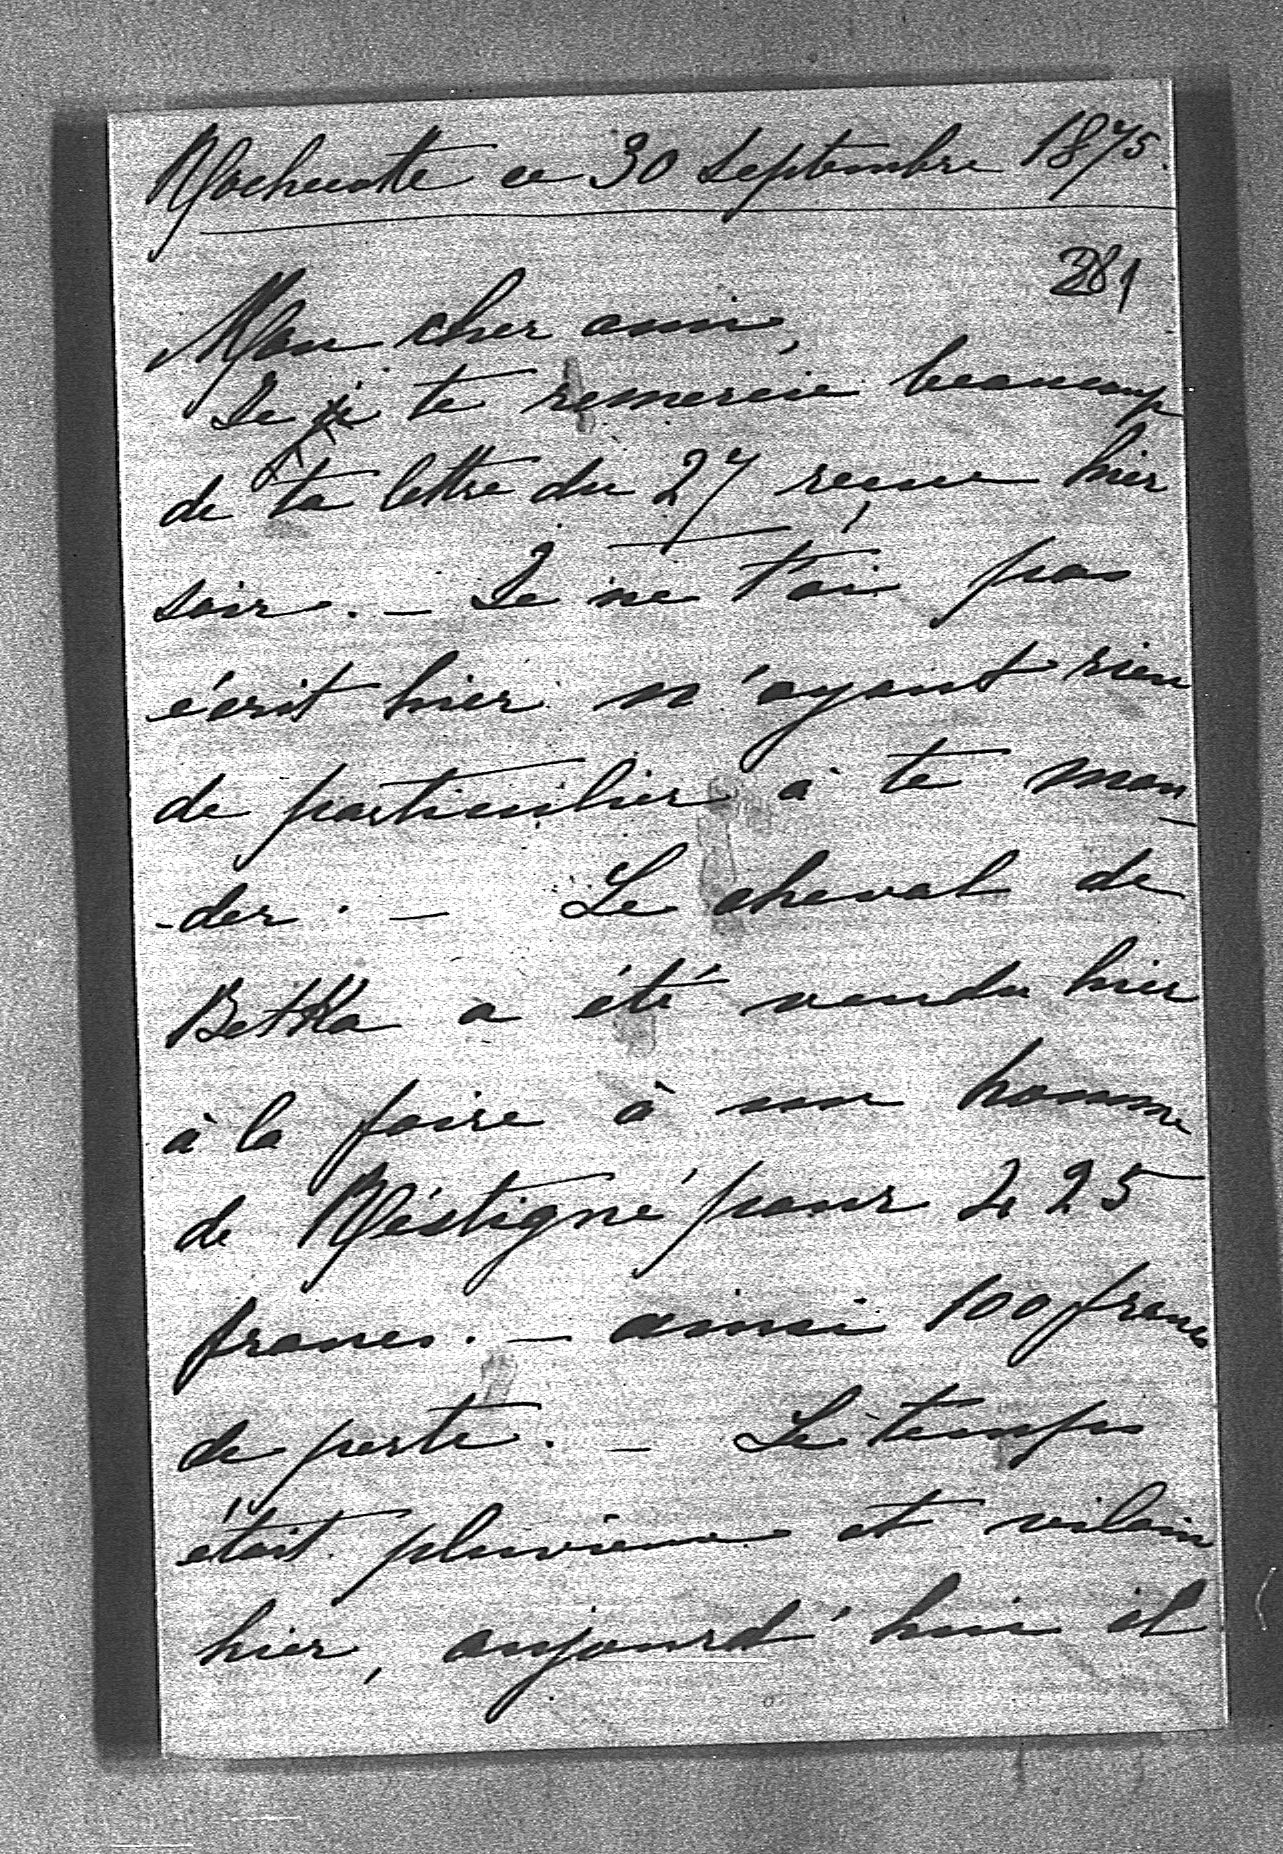 Rochecotte ce 30 Septembre 1875.
381
Mon cher ami,
Je te remercie beaucoup
de ta lettre du 27 reçue hier
soir. — Je ne t'ai pas
écrit hier n'ayant rien
de particulier à te man-
-der. — Le cheval de
Betka a été vendu hier
à la foire à un homme
de Réstigné pour 425
francs. — ainsi 100 francs
de perte. — Le temps
était pluvieux et vilain
hier, aujourd'hui il